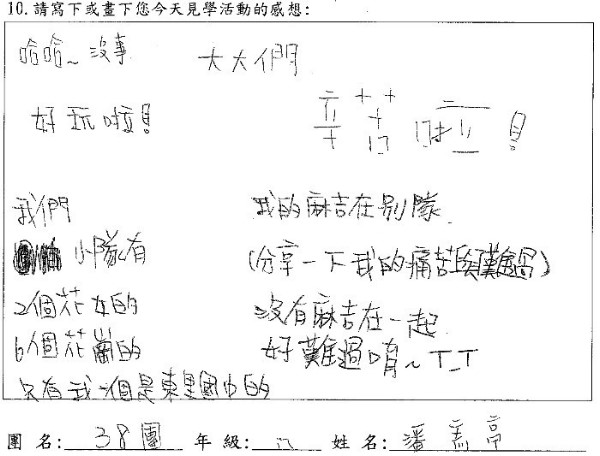 10.請寫下或畫下您今天見學活動的感想:
哈哈~沒事
好玩啦!
大大們
辛苦啦!
我們
小隊有
2個花女的
6個花崗的
只有我1個是東里國中的
我的麻吉在別隊.
(分享一下我的痛苦與難過)
沒有麻吉在一起.
好難過唷~T_T
團 名: 38團 年 級: 姓 名: 潘 亭